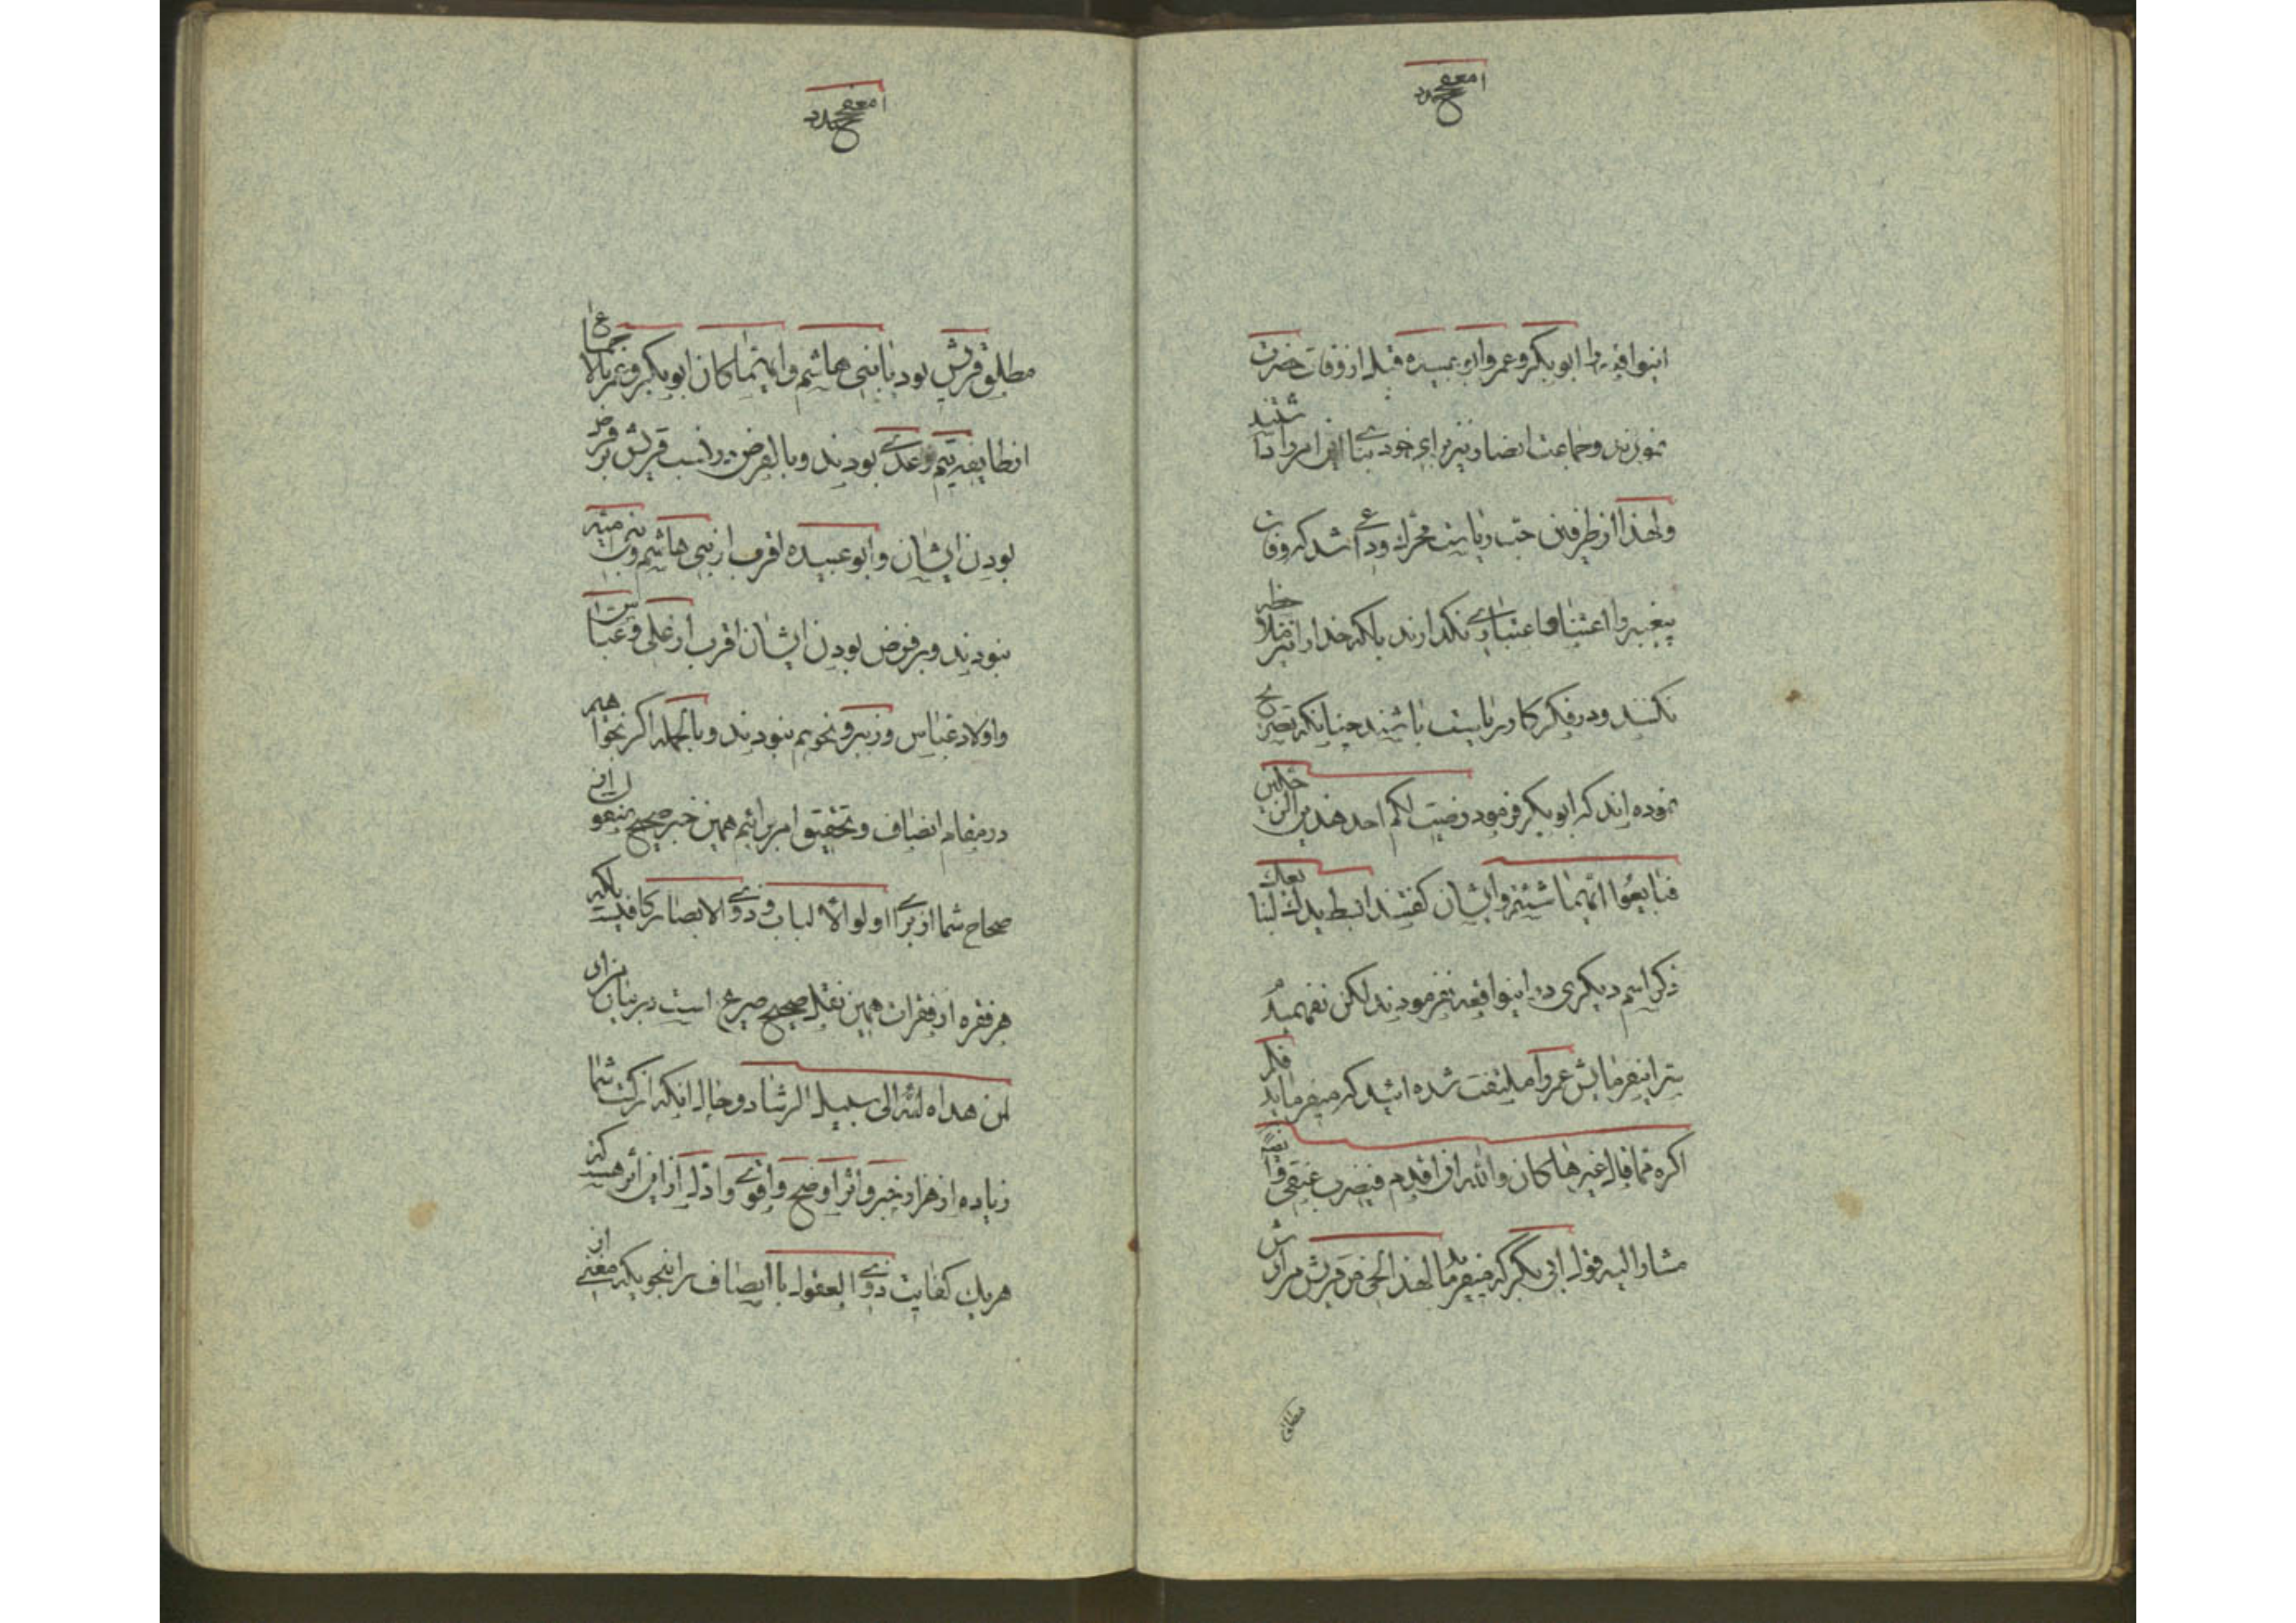 اینواقعه را ابوبکر و عمر و ابو عبیده قبل از وفات حضرت
نمودند و جماعت انصار نیز برای خود بنا این امر را داشتند
و لهذا از طرفین حب ریاست محرک و داعی شد که وفات
پیغمبر را اعتنا و اعتباری نکدارند بلکه خدا را نیز ملاحظه
نکنند و در فکر کار ریاست باشند چنانکه تصریح
نموده اند که ابوبکر فرمود رضیت لکم احد هذین الرجلین
فبایعوا ایهما شئتم و ایشان کفتند ابسط یدک لنبایعک
ذکر اسم دیکری در اینواقعه نفرمودند لکن نفهمید
بتر اینفرمایش عمر را ملتفت شده اشید که میفرماید فلم
اکره مما قال غیرها کان والله ان اقدم فیضرب عنقی
مشار الیه قول ابی بکر که میفرماید لهذا الحی من قریش مرادش
مطلق
مطلق قریش بود یا بنی هاشم و ایهما کان ابوبکر و عمر بالاجماع
از طایفه تیم و عدی بودند و بالفرض در نسب قریش بر فرض
بودن ایشان و ابو عبیده اقرب از بنی هاشم و بنی امیه
نبودند و بر فرض بودن ایشان اقرب از علی و عباس
و اولاد عباس و زبیر و نحوهم نبودند و بالجمله اکر بخواهیم
در مقام انصاف و تحقیق امر برائیم همین خبر صحیح منقول از
صحاح شما از برای اولو الالباب و ذوی الابصار کافیست بلکه
هر فقره از فقرات همین نقل صحیح صریح است در بنا بران
من هداه الله الی سبیل الرشاد و حال انکه از کتب شما
زیاده از هزار خبر و اثر اوضح و اقوی و ادل از این اثر هست که
هر یک کفایت ذوی العقول با انصاف را بنحویکه مغنی از